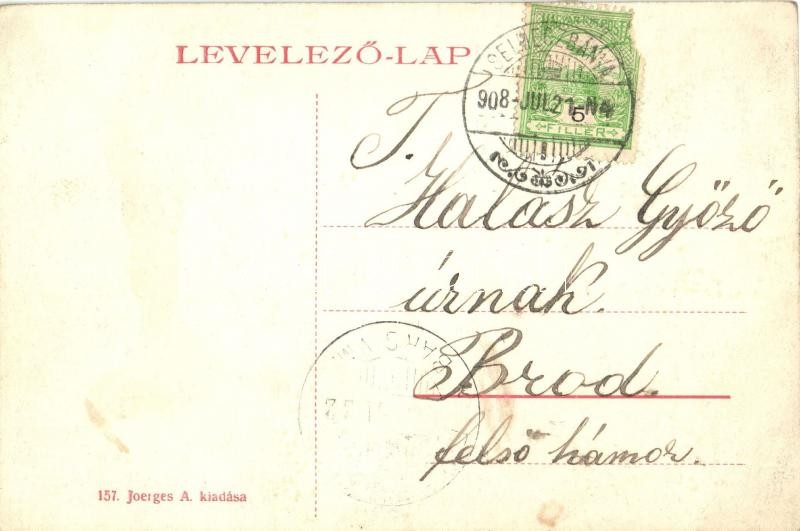 LEVELEZŐ-LAP
SELMECZBÁNYA
908-JUL.21-N4
5
FILLÉR
T.
Halasz Győző
úrnak.
Brod.
felső hámor.
157. Joerges A. kiadása